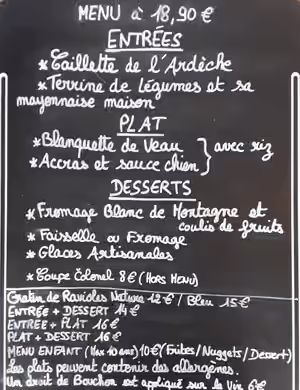 MENU à 18,90 €
ENTRÉES
* Caillette de l'Ardèche
* Terrine de légumes et sa
mayonnaise maison
PLAT
* Blanquette de Veau } avec riz
* Accras et sauce chien
DESSERTS
* Fromage Blanc de Montagne et
coulis de fruits
* Faisselle ou Fromage
* Glaces Artisanales
* Coupe Colonel 8 € (HORS MENU)
Gratin de Ravioles Nature 12 € / Bleu 15 €
ENTRÉE + DESSERT 14 €
ENTREE + PLAT 16 €
PLAT + DESSERT 16 €
MENU ENFANT (Max 10 ans) 10 € (Frites/Nuggets/Dessert)
Les plats peuvent contenir des allergènes.
Un droit de Bouchon est appliqué sur le Vin 6 €